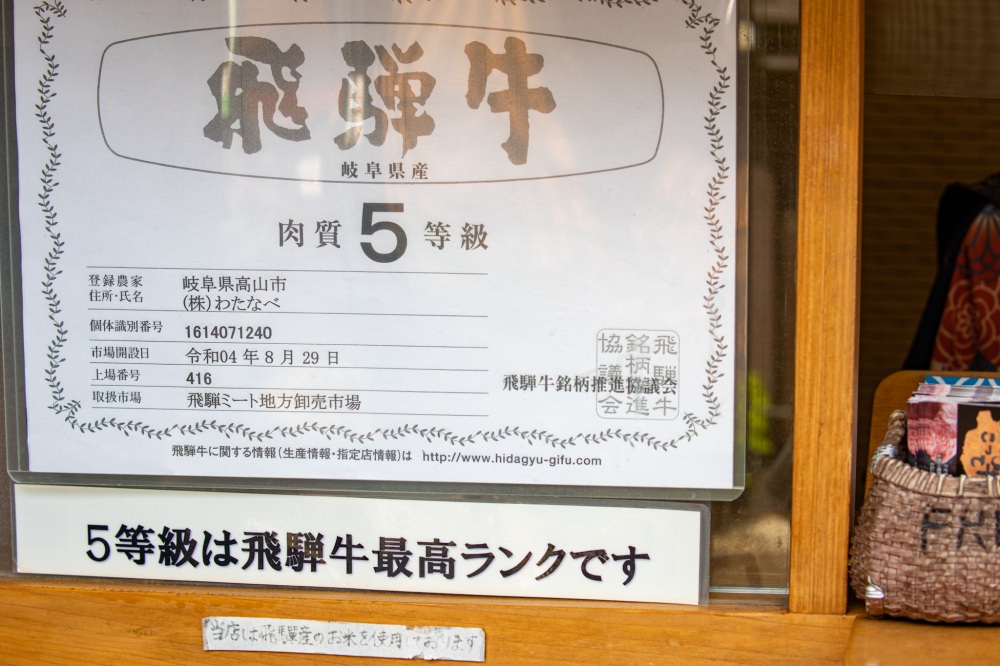 飛騨牛
岐阜県産
肉質 5 等級
登録農家
住所・氏名
岐阜県高山市
(株)わたなべ
個体識別番号 1614071240
市場開設日 令和04年8月29日
上場番号 416
取扱市場 飛騨ミート地方卸売市場
飛騨牛銘柄推進協議会
飛騨牛
銘柄推進
協議会
飛騨牛に関する情報(生産情報・指定店情報)は http://www.hidagyu-gifu.com
5等級は飛騨牛最高ランクです
当店は飛騨産のお米を使用しております